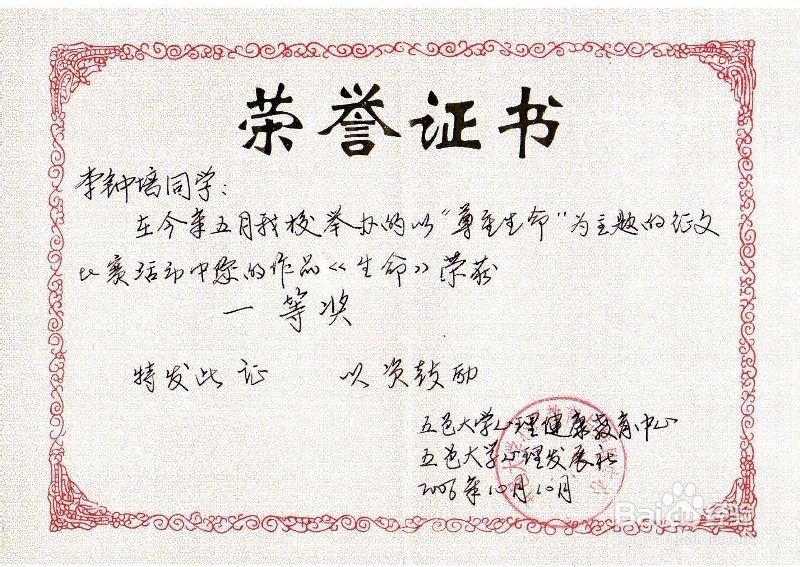 荣誉证书
李钟培同学:
在今年五月我校举办的以“尊重生命”为主题的征文
比赛活动中您的作品《生命》荣获
一等奖
特发此证 以资鼓励
五邑大学心理健康教育中心
五邑大学心理发展社
2006年10月10月
Bai 经验